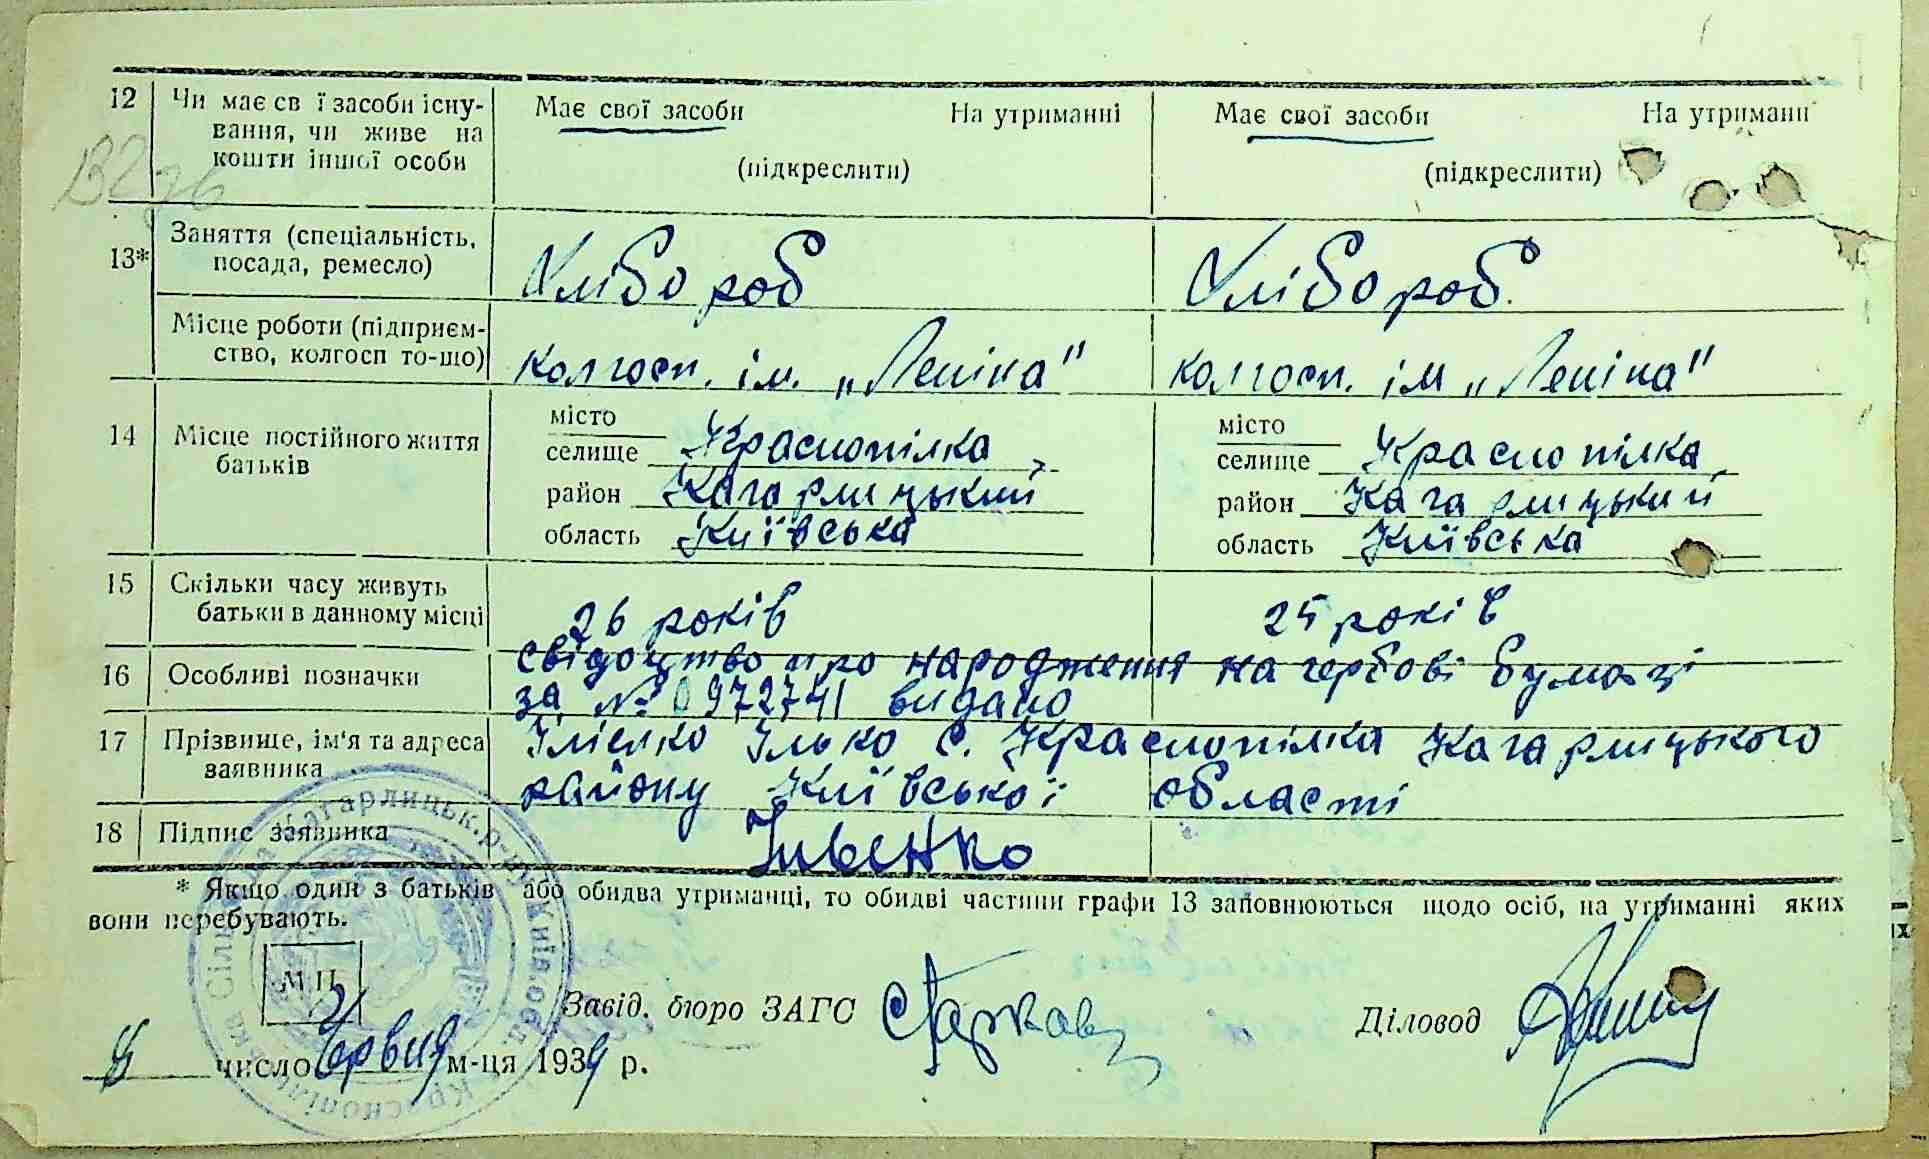 12 Чи має св ї засоби існу- Має свої засоби На утриманні Має свої засоби На утриманн
вання, чи живе на
кошти іншої особи (підкреслити) (підкреслити)
13* Заняття (спеціальність, Хлібороб Хлібороб
посада, ремесло)
Місце роботи (підприєм-
ство, колгосп то-що) колгосп. ім. „Леніна" колгосп. ім „Леніна"
14 Місце постійного життя
батьків
місто
селище Краснопілка,
район Кагарлицький
область Київська
місто
селище Краснопілка,
район Кагарлицький
область Київська
15 Скільки часу живуть
батьки в данному місці 26 років 25 років
16 Особливі позначки свідоцтво про народження на гербові бумазі
за № 0972741 видано
17 Прізвище, ім'я та адреса Ілько с. Краснопілка Кагарлицького
заявника району Київської області
18 Підпис заявника
* Якщо один з батьків або обидва утриманці, то обидві частини графи 13 заповнюються щодо осіб, на утриманні яких
вони перебувають.
М П
Завід. бюро ЗАГС Діловод
8 число Червня м-ця 1939 р.
Кагарлицьк. р-ну Київ. обл.